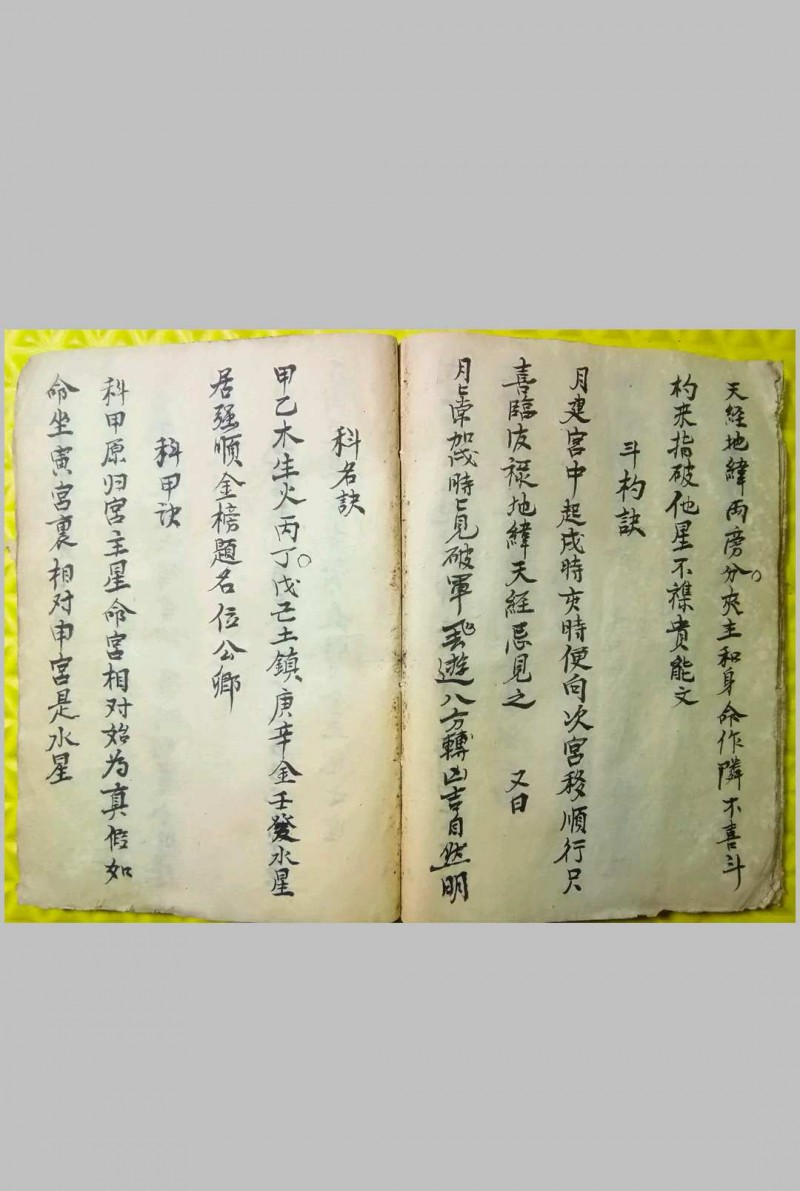 天經地緯兩旁分夾主和身命作隣不喜斗
杓来指破他星不襍貴能文
斗杓訣
月建宮中起戌時亥時便向次宮移順行只
喜臨官祿地緯天經忌見之 又曰
月〻常加戌時〻見破軍飛遊八方轉凶吉自然明
科名訣
甲乙木生火丙丁戊己土鎮庚辛金壬癸水星
居强順金榜題名位公卿
科甲訣
科甲原归宮主星命宮相对始为真假如
命坐寅宮裏相对申宮是水星